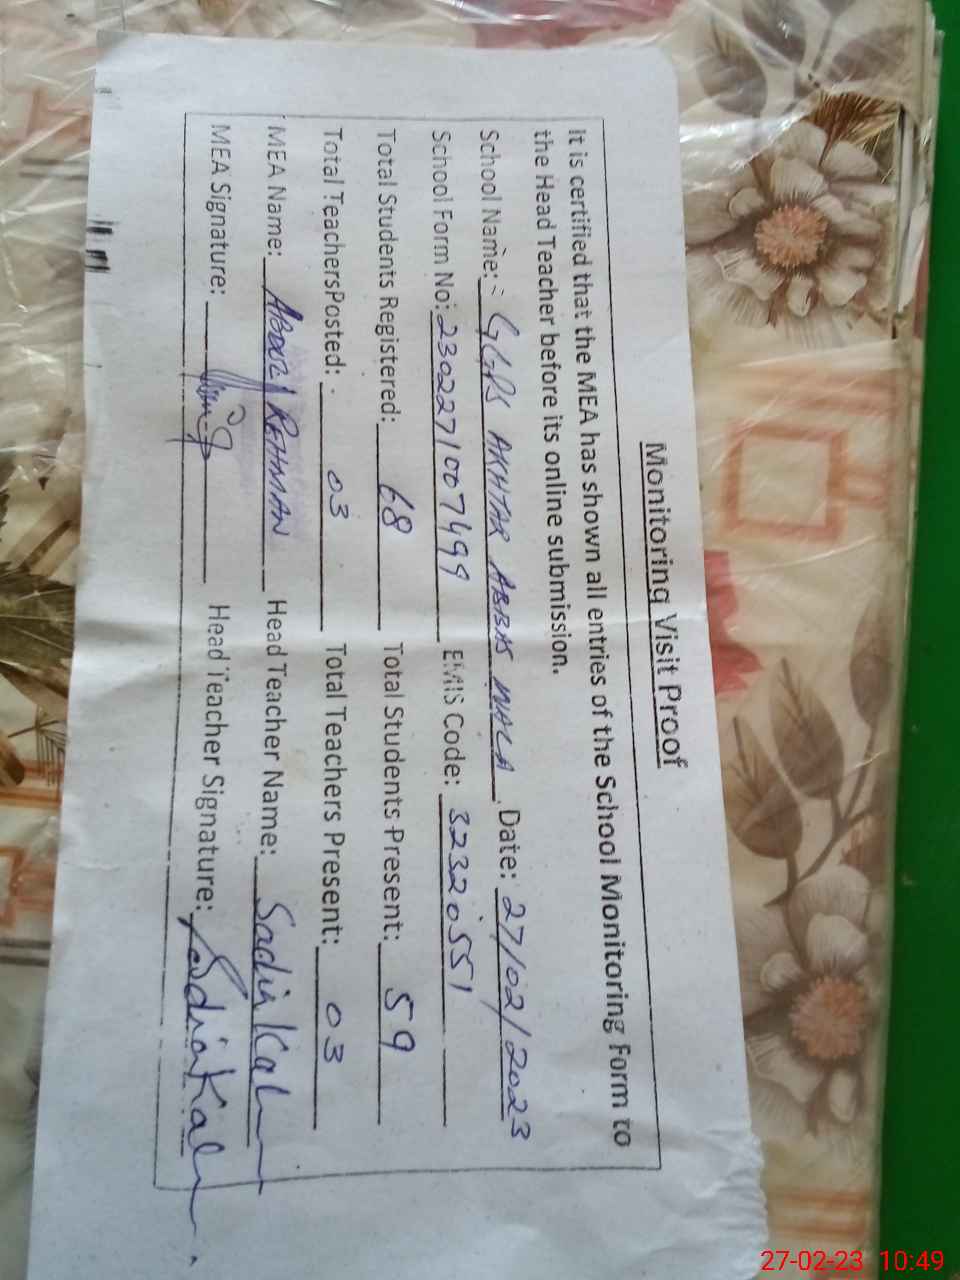 Monitoring Visit Proof
It is certified that the MEA has shown all entries of the School Monitoring Form to
the Head Teacher before its online submission.
School Name:- GGPS AKHTAR ABBAS WALA Date: 27/02/2023
School Form No: 2302271007499 EMIS Code: 32320551
Total Students Registered: 68 Total Students Present: 59
Total TeachersPosted: 03 Total Teachers Present: 03
MEA Name: ABDUL REHMAN Head Teacher Name: Sadia
MEA Signature: Head Teacher Signature: Sadia
27-02-23 10:49